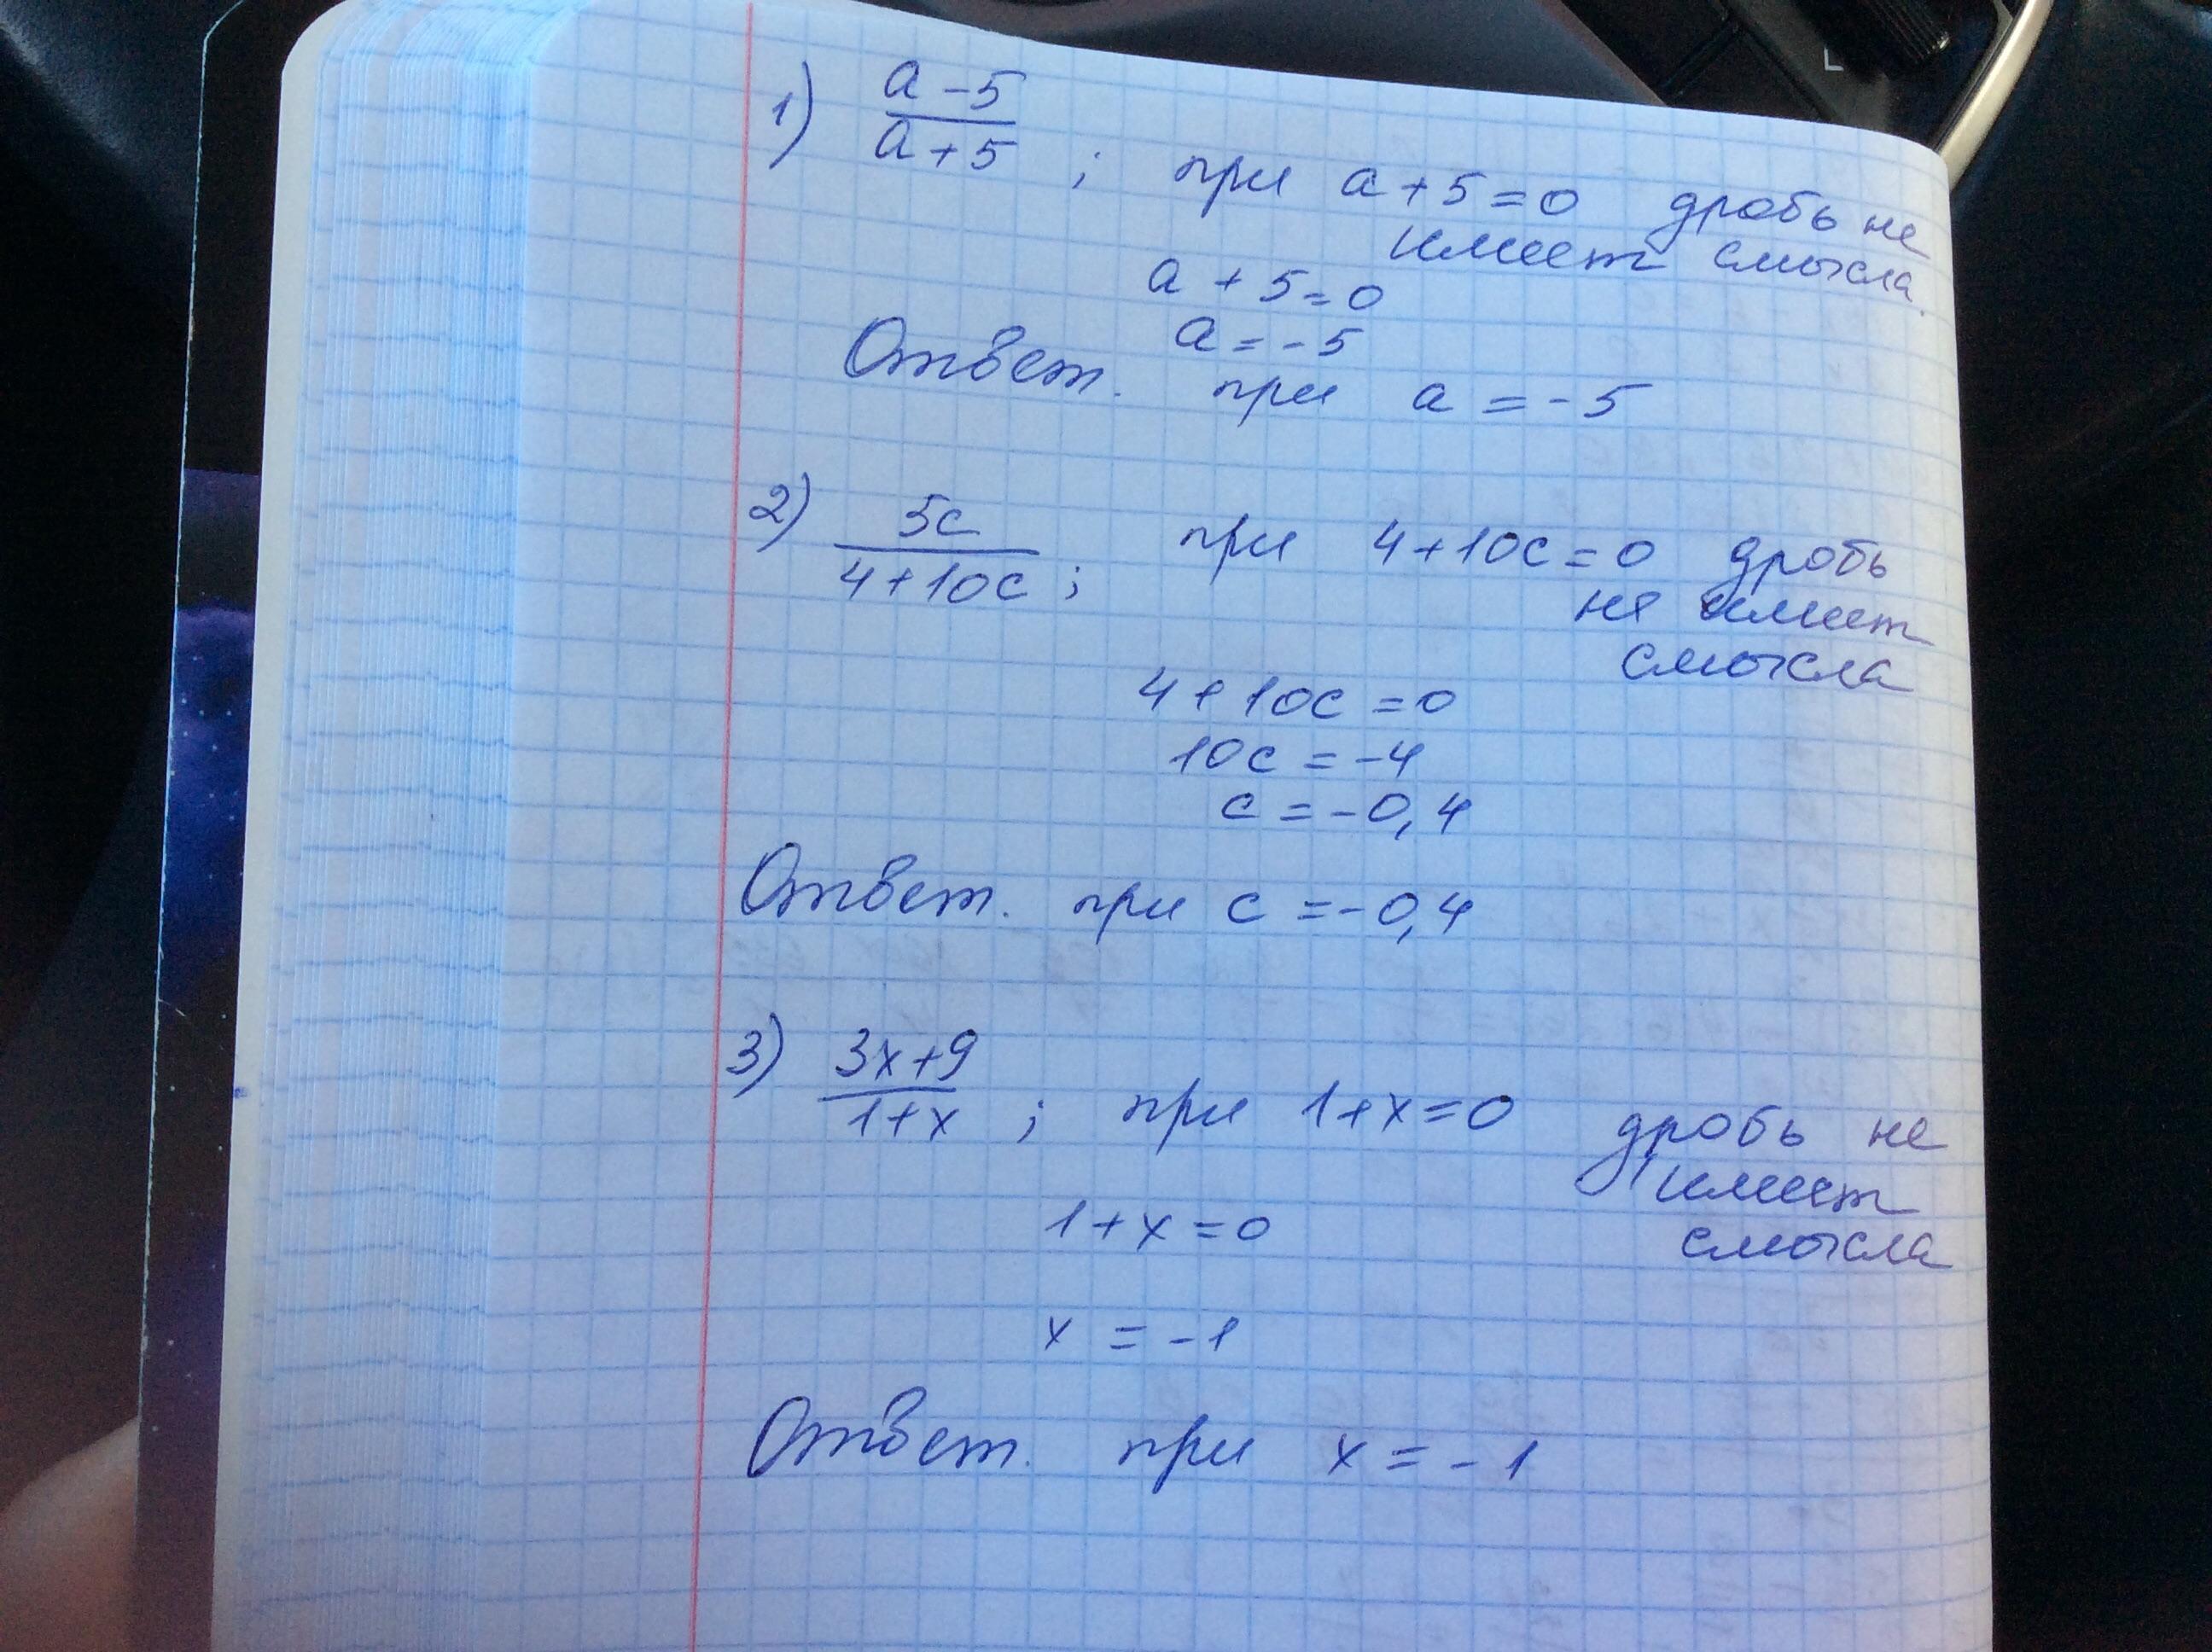 1) a-5
a+5 ; при a+5=0 дробь не
имеет смысла.
a+5=0
a=-5
Ответ. при a=-5
2) 5c
4+10c ; при 4+10c=0 дробь
не имеет
смысла
4+10c=0
10c=-4
c=-0,4
Ответ. при c=-0,4
3) 3x+9
1+x ; при 1+x=0 дробь не
имеет
смысла
1+x=0
x=-1
Ответ. при x=-1